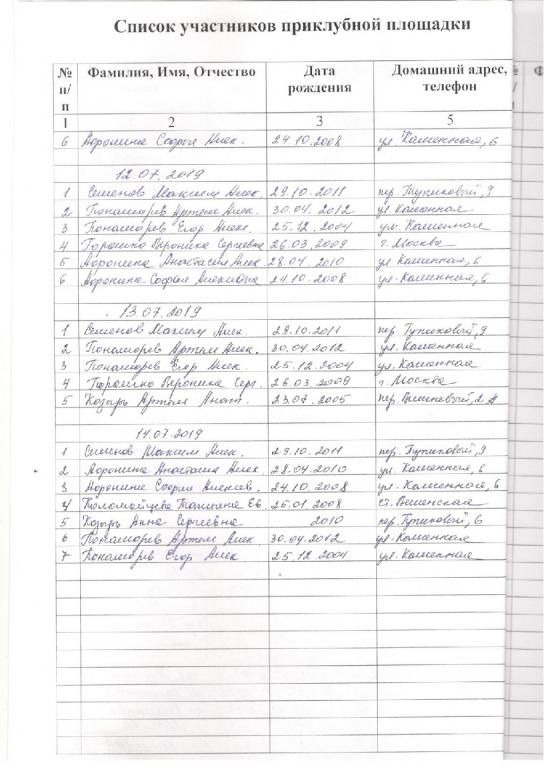 Список участников приклубной площадки
№ п/п Фамилия, Имя, Отчество Дата рождения Домашний адрес, телефон
1 2 3 5
6 Доронина Софья Алек. 24.10.2008 ул. Каменная, 6
12.07.2019
1 Семенов Максим Алек. 29.10.2011 пер. Тупиковый, 9
2 Понамарев Артем Алек. 30.04.2012 ул. Каменная
3 Понамарев Егор Алек. 25.12.2004 ул. Каменная
4 Вероника Сергеевна 26.03.2009 г. Москва
5 Доронина Анастасия Алек 28.04.2010 ул. Каменная, 6
6 Доронина Софья Алексеевна 24.10.2008 ул. Каменная, 6
13.07.2019
1 Семенов Максим Алек. 29.10.2011 пер. Тупиковый, 9
2 Понамарев Артем Алек. 30.04.2012 ул. Каменная
3 Понамарев Егор Алек. 25.12.2004 ул. Каменная
4 Вероника Серг. 26.03.2009 г. Москва
5 Козырь Артем Анат. 23.07.2005 пер. Вишневый, 2
14.07.2019
1 Семенов Максим Алек. 29.10.2011 пер. Тупиковый, 9
2 Доронина Анастасия Алек. 28.04.2010 ул. Каменная, 6
3 Доронина Софья Алексев. 24.10.2008 ул. Каменная, 6
4 Коломойцева Татьяна Ев. 25.01.2008 ст. Вешенская
5 Козырь Анна Сергеевна 2010 пер. Тупиковый, 6
6 Понамарев Артем Алек 30.04.2012 ул. Каменная
7 Понамарев Егор Алек 25.12.2004 ул. Каменная